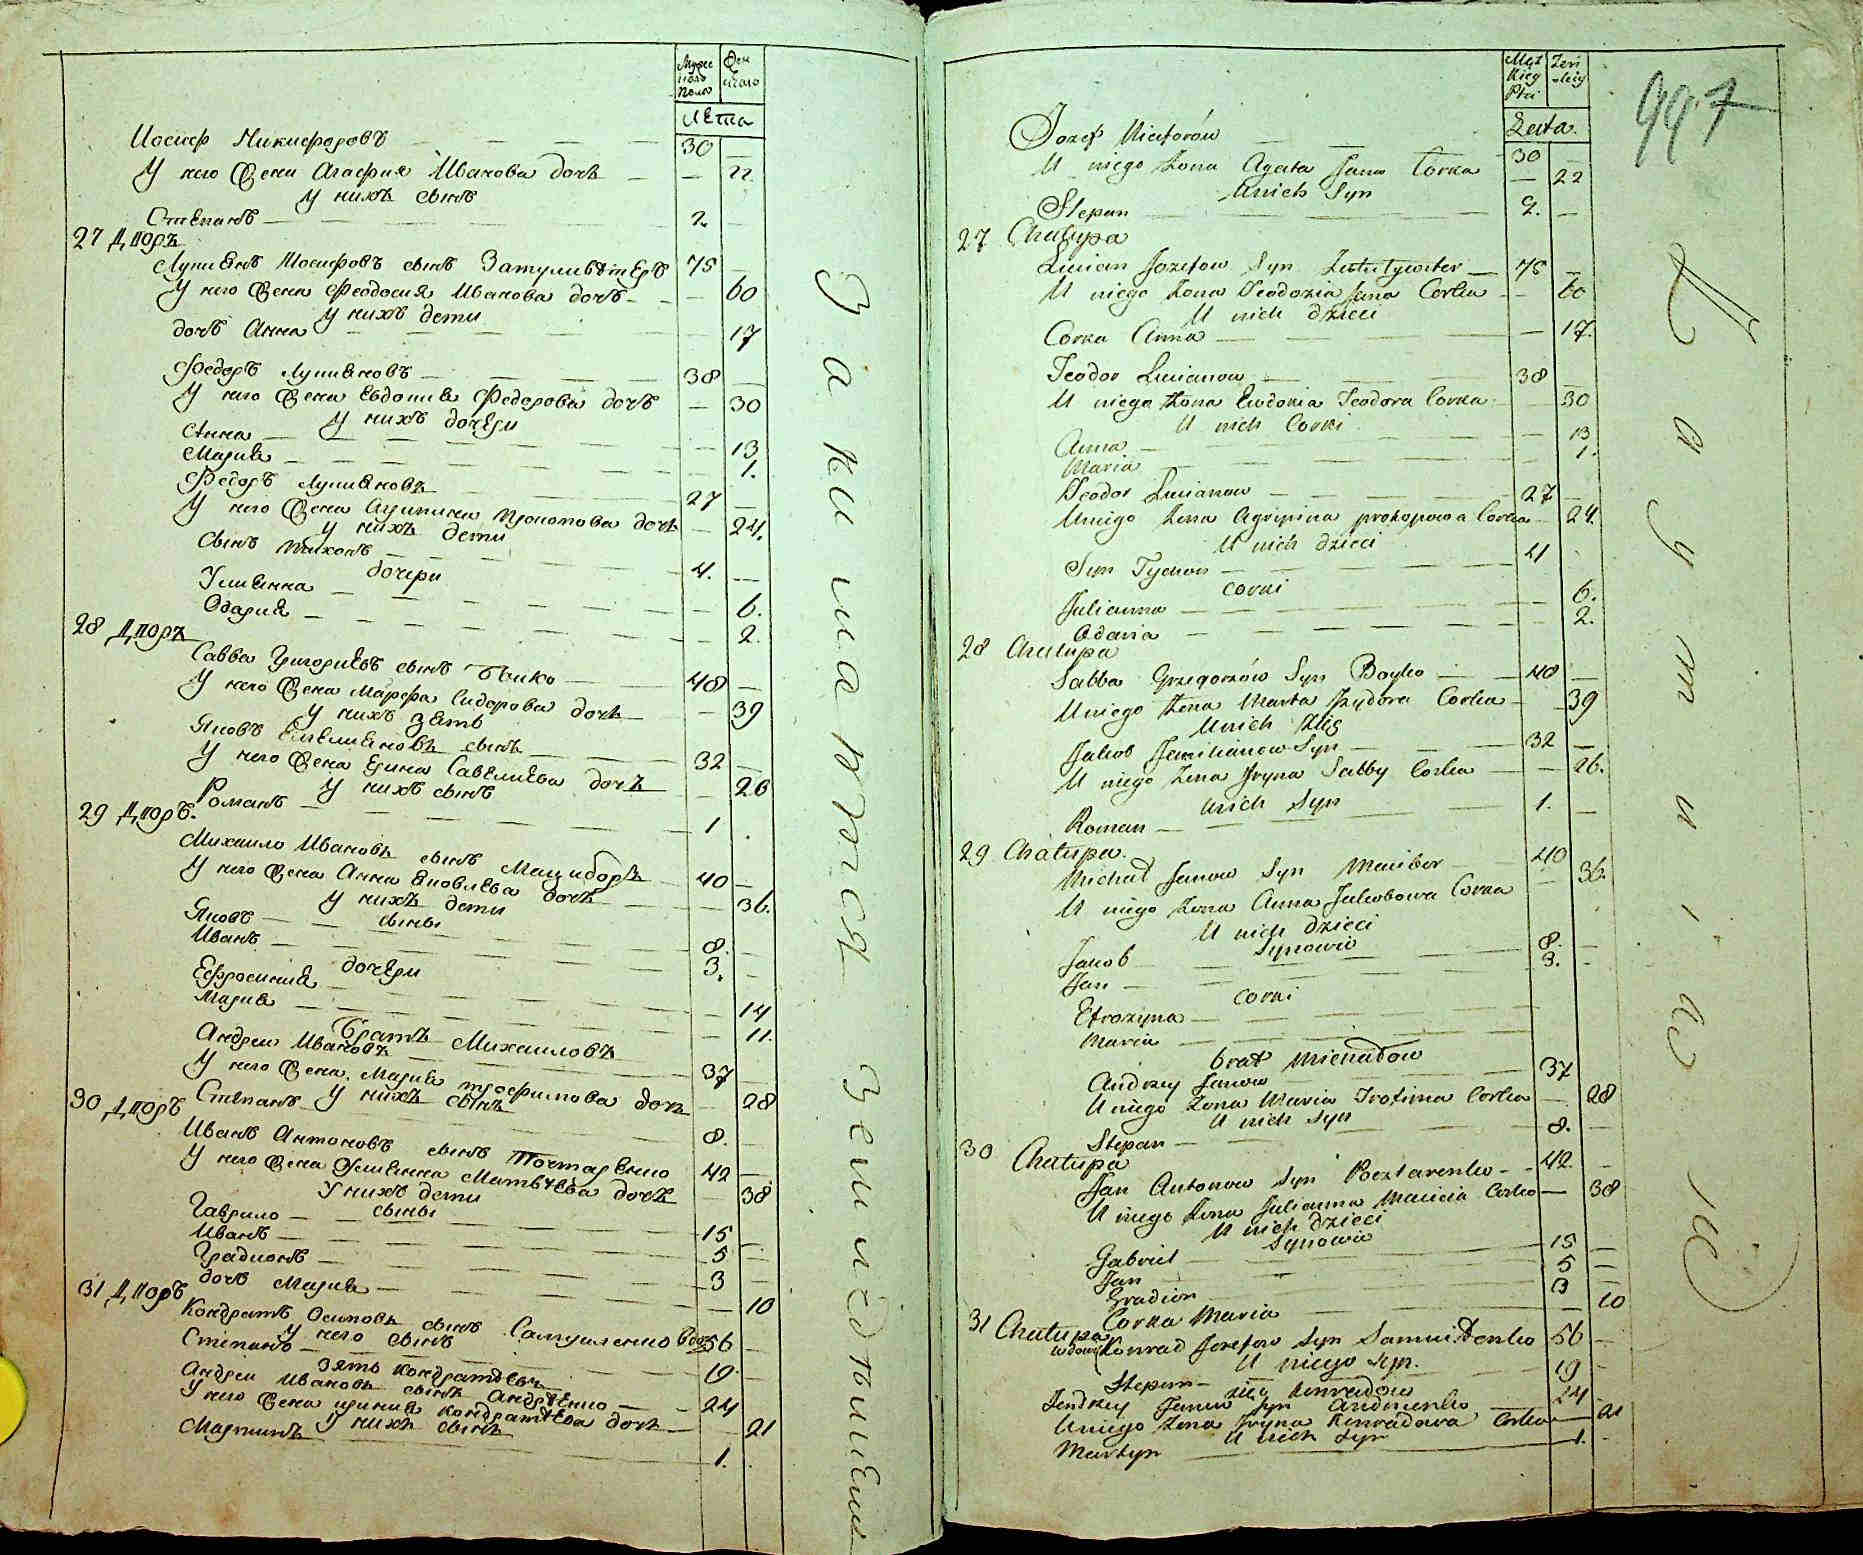 Мужеска полу
Женска го
Лета
Иосиф Никифоровъ 30
У него жена Агафия Иванова дочь 22
У нихъ сынъ
Степанъ 2
27 Дворъ
Лупиянъ Иосифовъ сынъ 75
У него жена Феодосия Иванова дочь 60
У нихъ дети
дочь Анна 17
Федоръ Лупияновъ 38
У него жена Евдокия Федорова дочь 30
У нихъ дочери
Анна 13
Мария 1.
Федоръ Лупияновъ 27
У него жена Агрипина Прокопова дочь 24.
У нихъ дети
Сынъ Тихонъ 4.
дочери
Улиянна 6.
Одария 2.
28 Дворъ
Савва Григориевъ сынъ Бойко 48
У него жена Марфа Сидорова дочь 39
У нихъ зять
Яковъ Емелияновъ сынъ 32
У него жена Ирина Савелиева дочь 26
У нихъ сынъ
Романъ 1
29 Дворъ.
Михаило Ивановъ сынъ Мацибора 40
У него жена Анна Яковлева дочь 36.
У нихъ дети
сыны
Яковъ 8.
Иванъ 3.
дочери
Ефросиния 14
Мария 11.
Братъ Михаиловъ
Андреи Ивановъ 37
У него жена Мария Трофимова дочь 28
У нихъ сынъ
Степанъ 8.
30 Дворъ
Иванъ Антоновъ сынъ Почтаренко 42
У него жена Улиянна Матвѣева дочь 38
У нихъ дети
сыны
Гаврило 15
Иванъ 5
Градионъ 3
дочь Мария 10
31 Дворъ
Кондратъ Осиповъ сынъ Самуиленко вдов 56
У него сынъ
Степанъ 19.
Зять Кондратьевъ
Андреи Ивановъ сынъ Андрѣенко 24
У него жена Ирина Кондратѣева дочь 21
У нихъ сынъ
Мартинъ 1.
Męz kiey Płci
Żeń skiey
Lata.
997
Jozef Niceforów 30
U niego Żona Agata Jana Corka 22
U nich Syn
Stepan 2.
27 Chałupa
Lucian Jozefow Syn 75
U niego Żona Teodozia Jana Corka 60
U nich dzieci
Corka Anna 17.
Teodor Lucianow 38
U niego Żona Ewdokia Teodora Corka 30
U nich Corki
Anna 13
Maria 1.
Teodor Lucianow 27
U niego Żona Agripina prokopowa Corka 24.
U nich dzieci
Syn Tychon 4
corki
Julianna 6.
Odaria 2.
28 Chałupa
Sabba Grzegorzów Syn Boyko 48
U niego Żona Marta Izydora Corka 39
U nich Zięć
Jakob Jemilianow Syn 32
U niego Żona Iryna Sabby Corka 26.
U nich Syn
Roman 1.
29 Chałupa.
Michał Janow Syn Macibor 40
U niego Żona Anna Jakobowa Corka 36.
U nich dzieci
Synowie
Jakob 8.
Jan 3.
corki
Efrozyna
Maria
brat Michałow
Andrzey Janow 37
U niego Żona Maria Trofima Corka 28
U nich Syn
Stepan 8.
30 Chałupa
Jan Antonow Syn Pocztarenko 42.
U niego Żona Julianna Macieia Corka 38
U nich dzieci
Synowie
Gabriel 15
Jan 5
Gradion 3
Corka Maria 10
31 Chałupa
wdowiec Konrad Jozefow Syn Samuilenko 56
U niego Syn.
Stepan 19
zięć Konradow
Jendrzey Janow Syn Andrienko 24
U niego Żona Iryna Konradowa Corka 21
U nich Syn
Martyn 1.